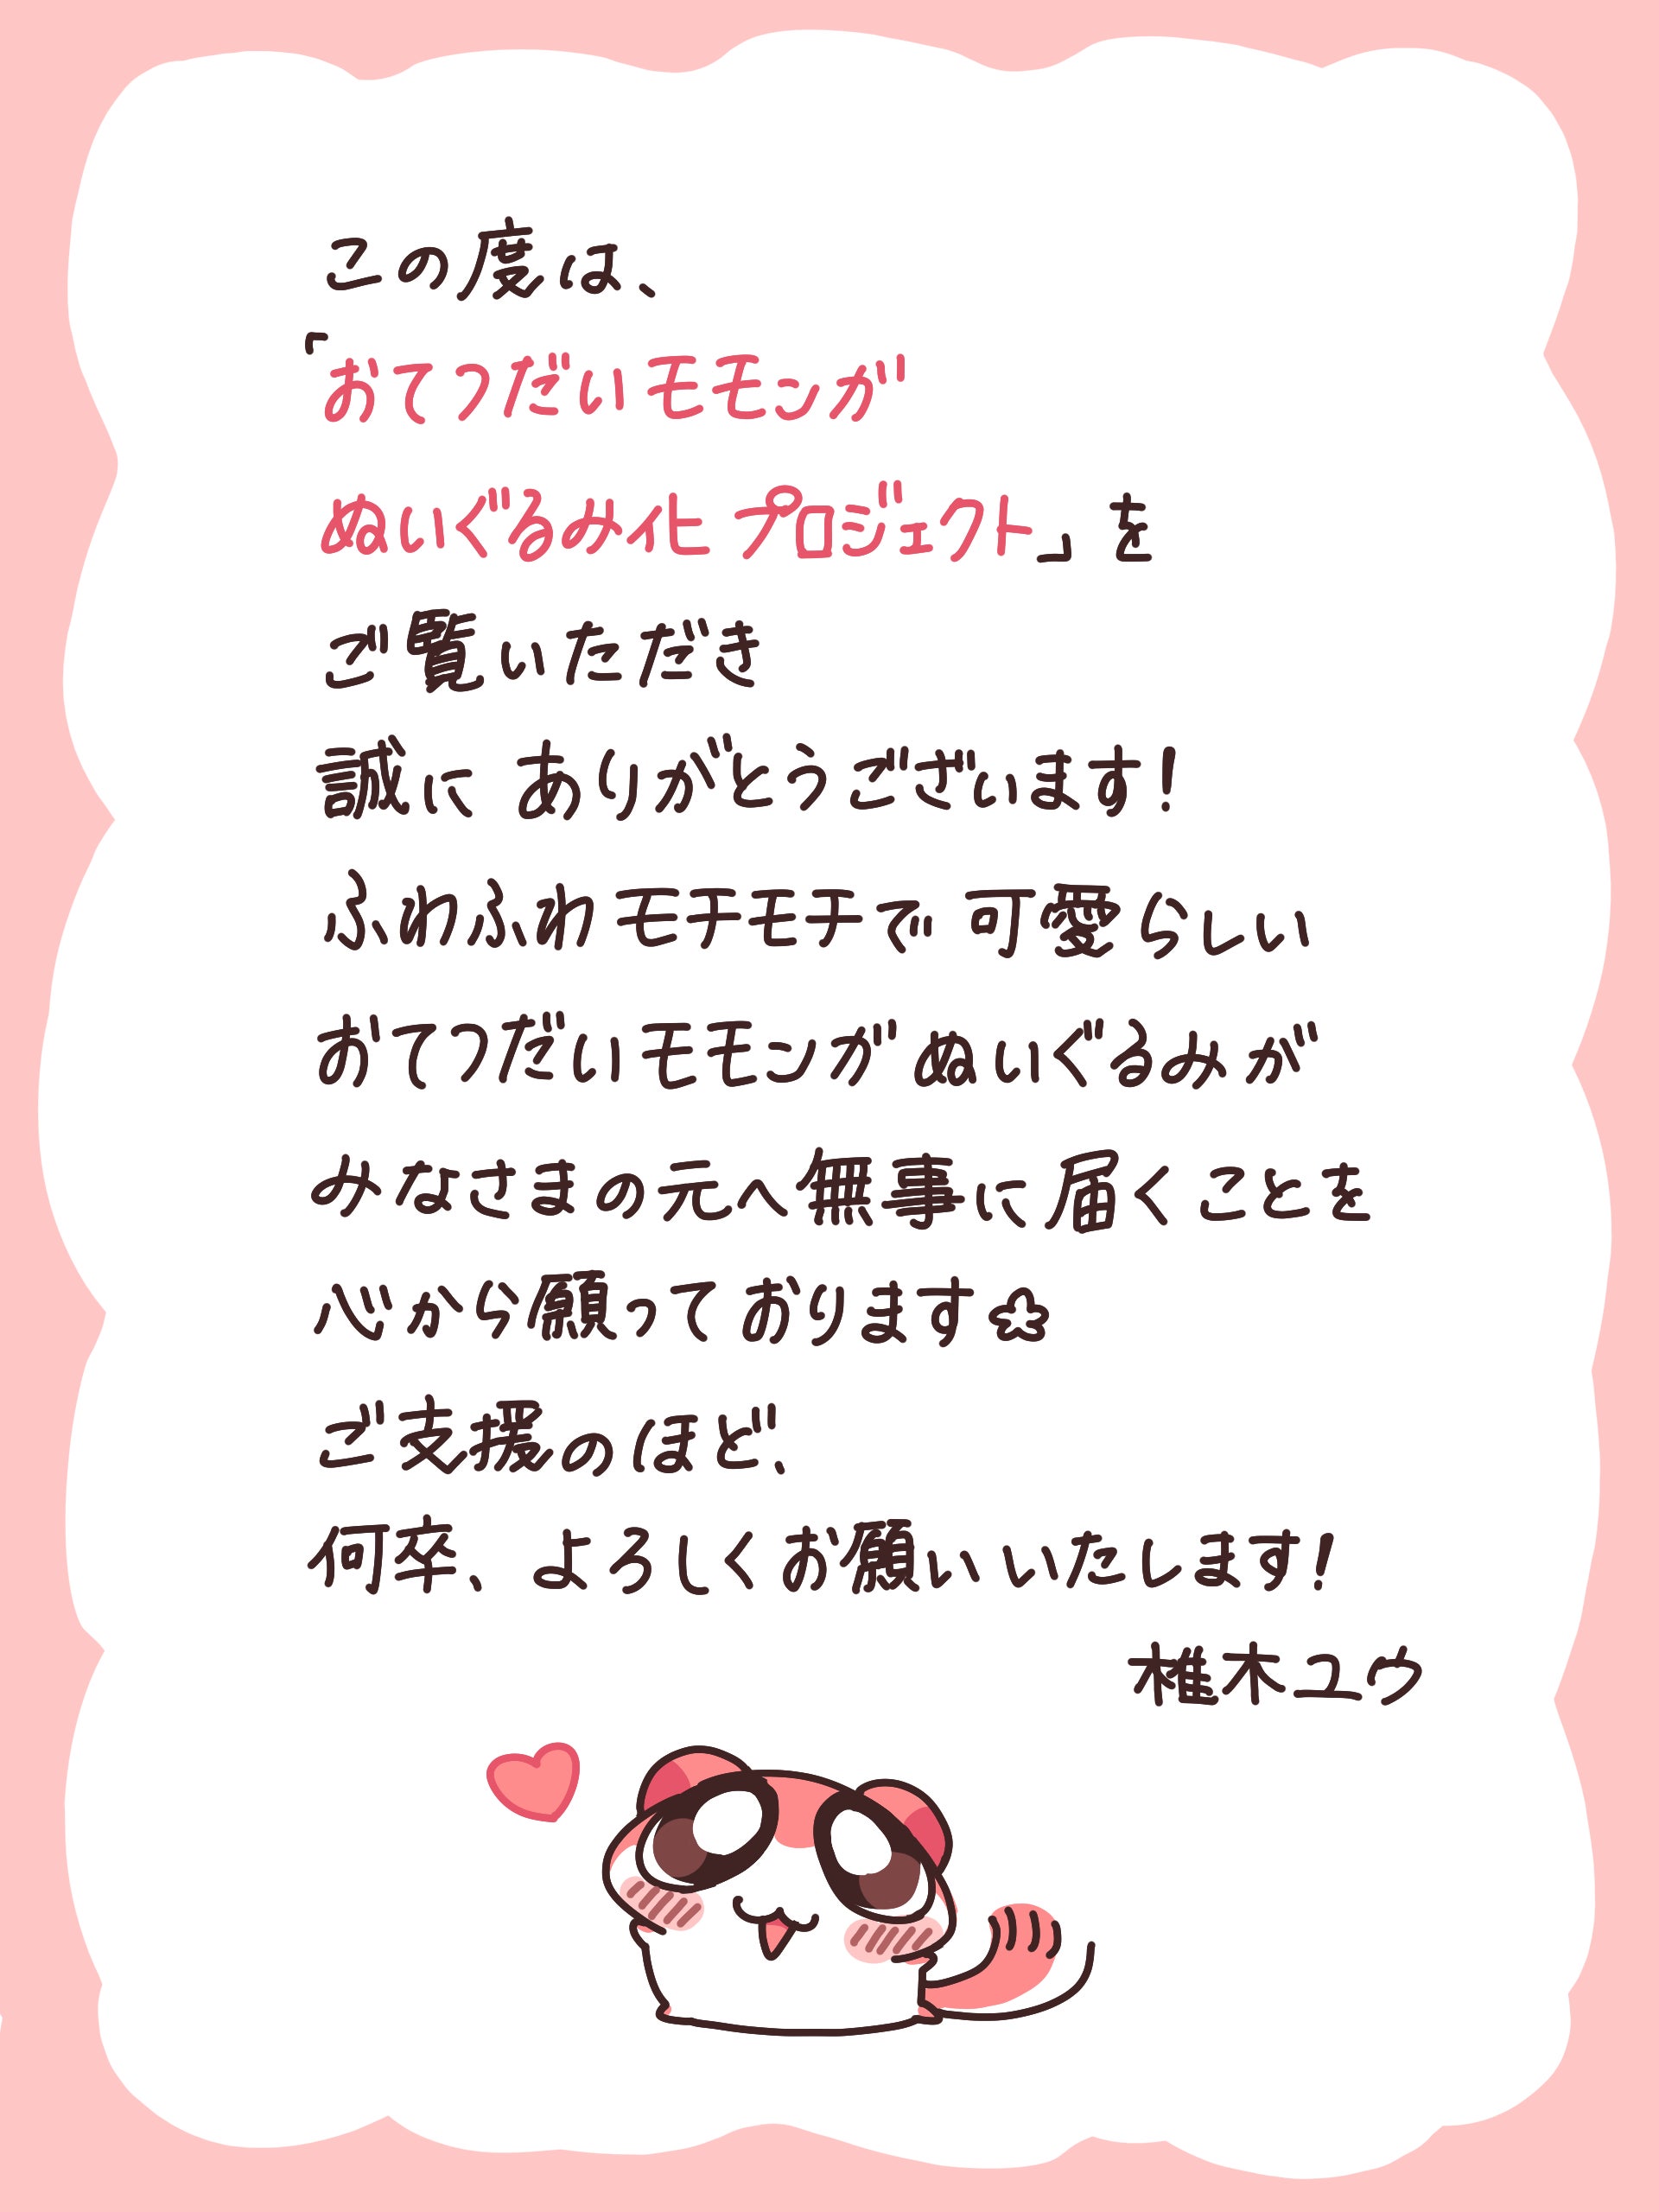 この度は、
「おてつだいモモンガ
ぬいぐるみ化プロジェクト」を
ご覧いただき
誠に ありがとうございます!
ふわふわモチモチで可愛らしい
おてつだいモモンガぬいぐるみが
みなさまの元へ無事に届くことを
心から願っております✿
ご支援のほど、
何卒、よろしくお願いいたします!
椎木ユウ